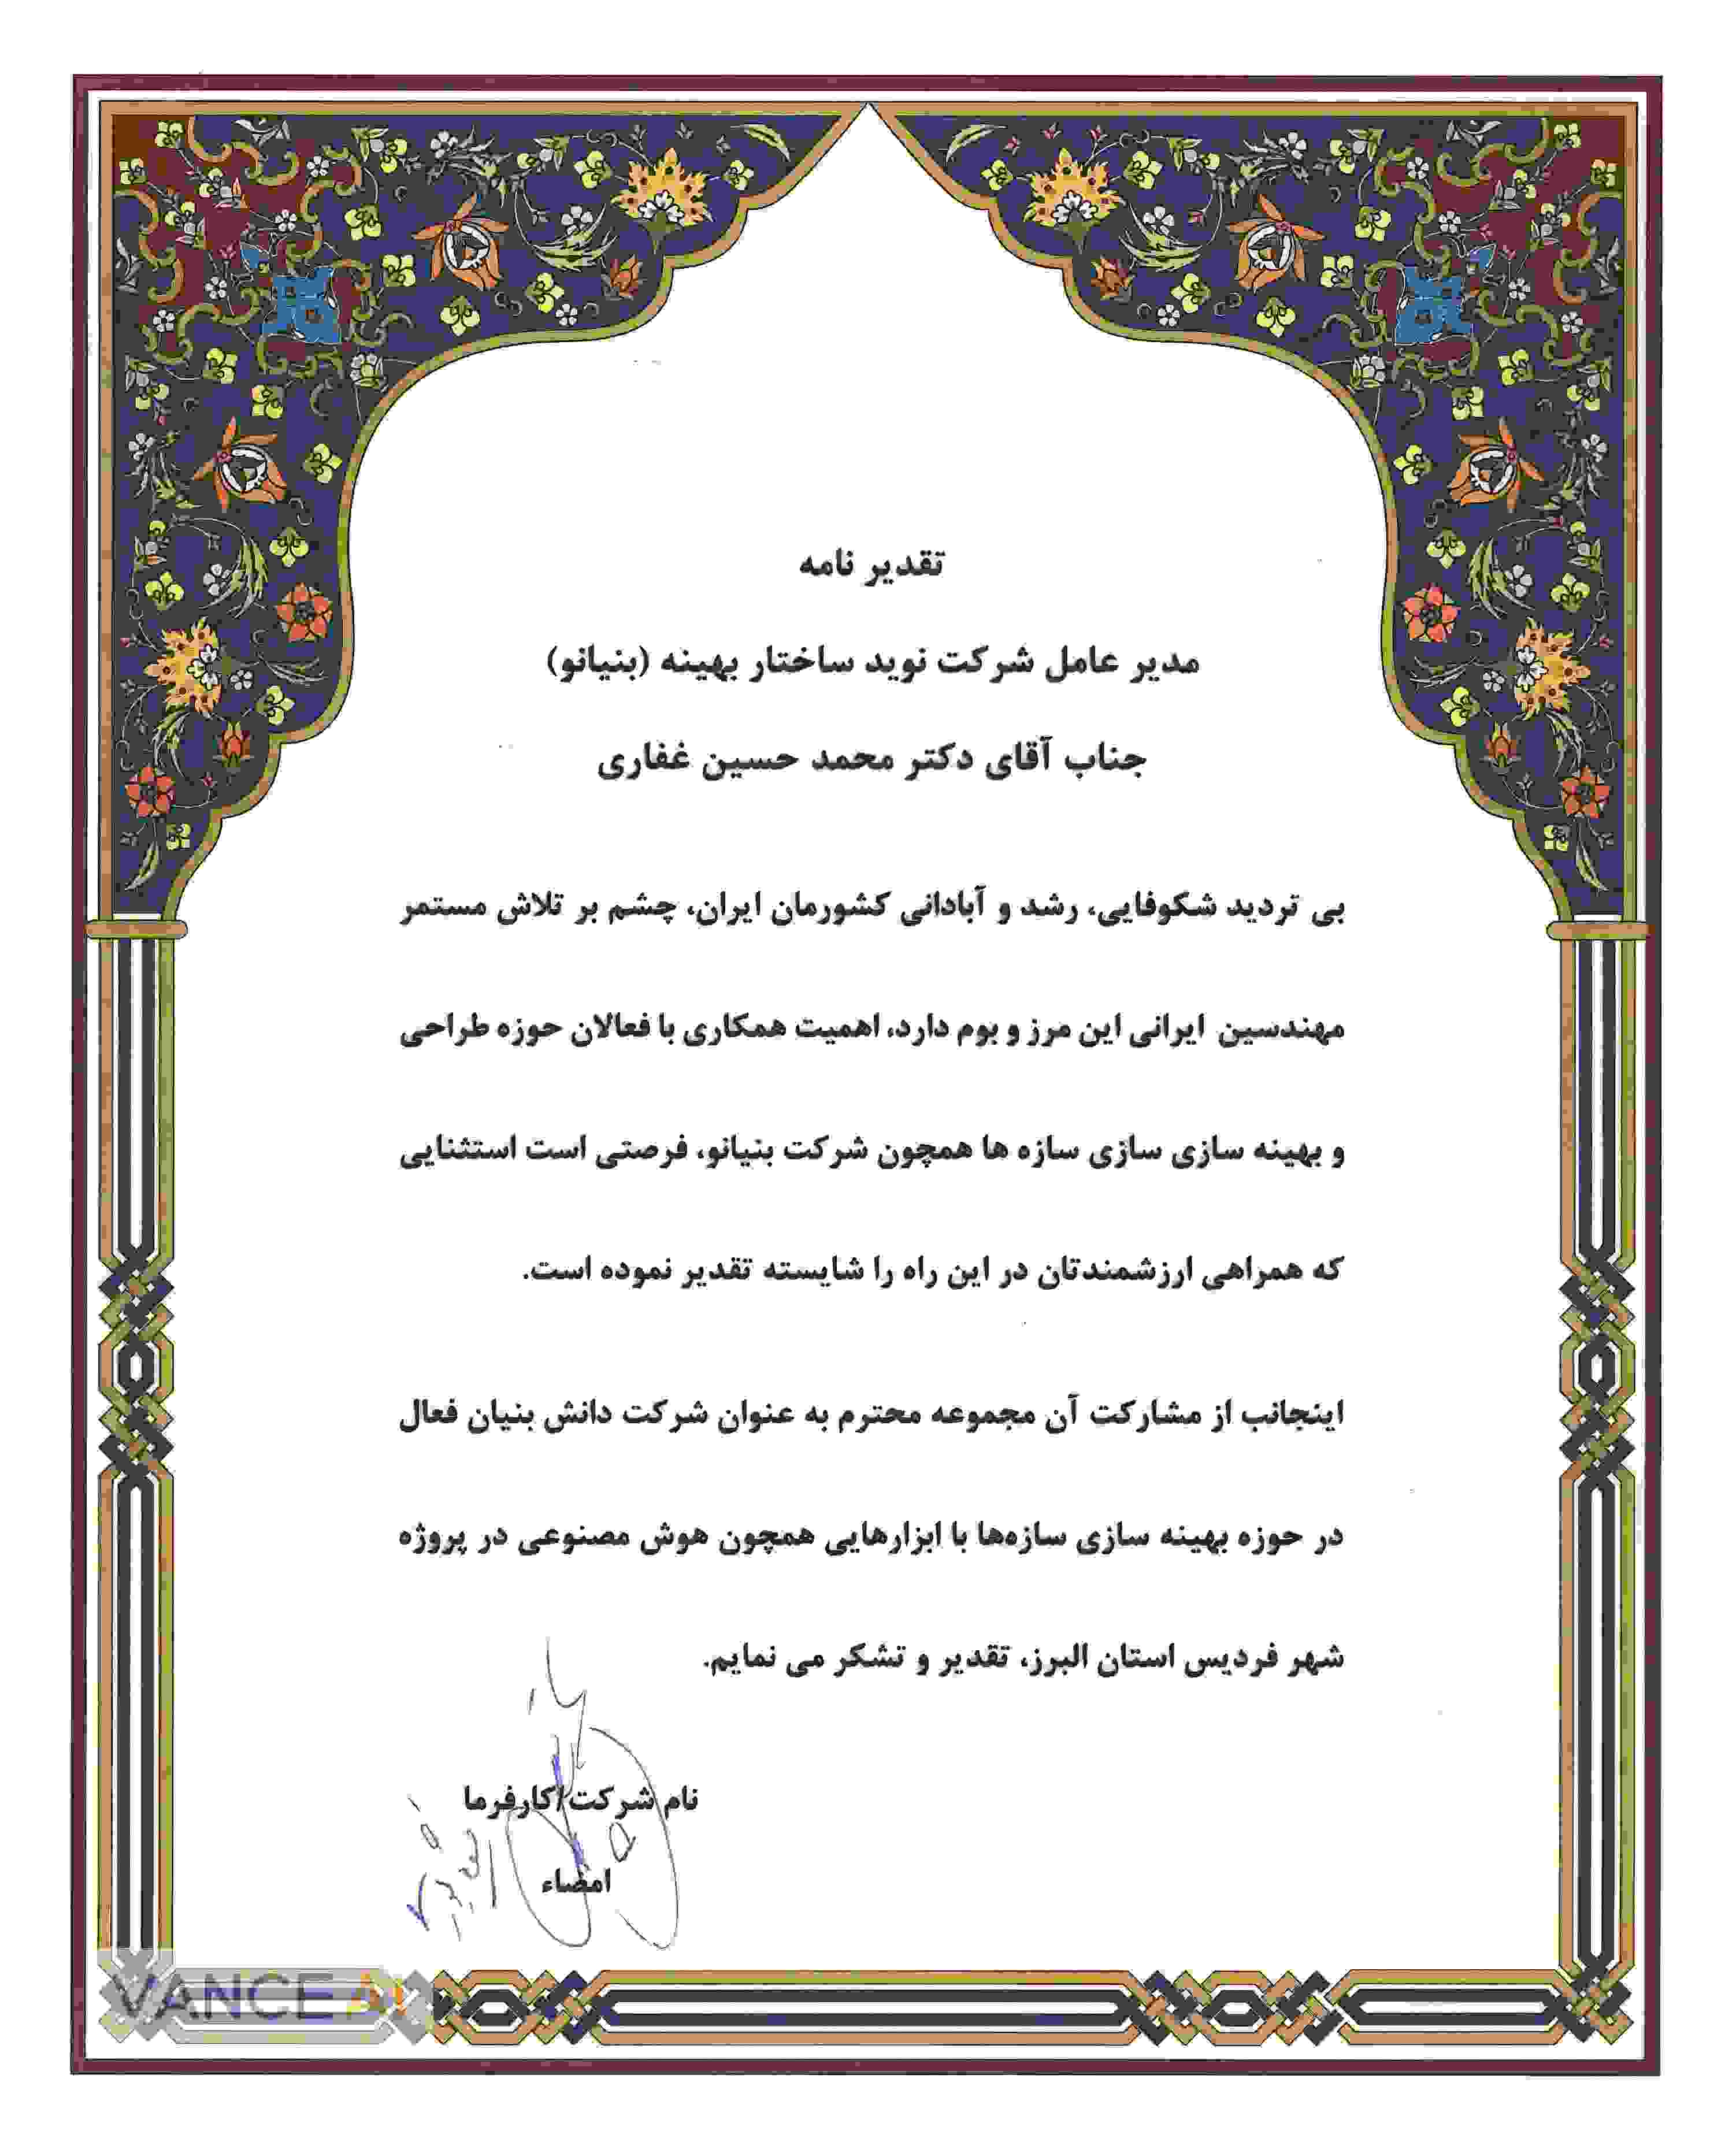 تقدیر نامه
مدیر عامل شرکت نوید ساختار بهینه (بنیانو)
جناب آقای دکتر محمد حسین غفاری
بی تردید شکوفایی، رشد و آبادانی کشورمان ایران، چشم بر تلاش مستمر
مهندسین ایرانی این مرز و بوم دارد. اهمیت همکاری با فعالان حوزه طراحی
و بهینه سازی سازی سازه ها همچون شرکت بنیانو، فرصتی است استثنایی
که همراهی ارزشمندتان در این راه را شایسته تقدیر نموده است.
اینجانب از مشارکت آن مجموعه محترم به عنوان شرکت دانش بنیان فعال
در حوزه بهینه سازی سازه‌ها با ابزارهایی همچون هوش مصنوعی در پروژه
شهر فردیس استان البرز، تقدیر و تشکر می نمایم.
نام شرکت/کارفرما
امضاء
VANCEAI